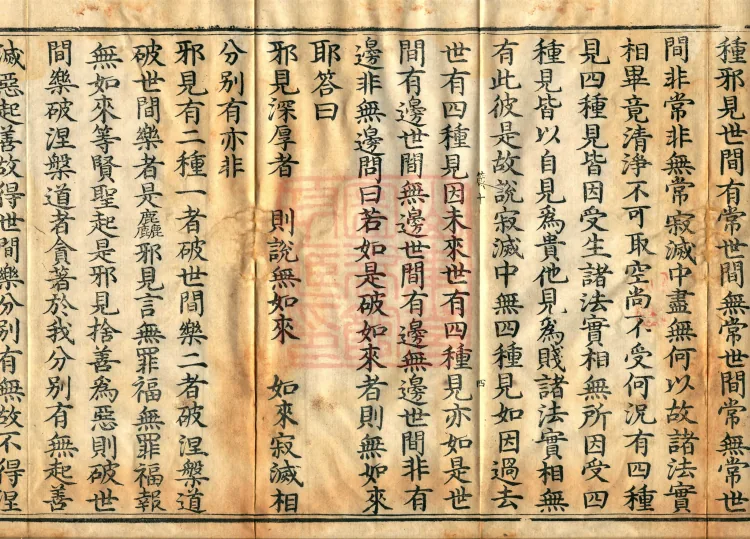 種邪見世間有常世間無常世間常無常世
間非常非無常寂滅中盡無何以故諸法實
相畢竟清淨不可取空尚不受何況有四種
見四種見皆因受生諸法實相無所因受四
種見皆以自見爲貴他見爲賤諸法實相無
有此彼是故說寂滅中無四種見如因過去
四
世有四種見因未來世有四種見亦如是世
間有邊世間無邊世間有邊無邊世間非有
邊非無邊問曰若如是破如來者則無如來
耶答曰
邪見深厚者　則說無如來　如來寂滅相
分別有亦非
邪見有二種一者破世間樂二者破涅槃道
破世間樂者是麤邪見言無罪福無罪福報
無如來等賢聖起是邪見捨善爲惡則破世
間樂破涅槃道者貪著於我分別有無起善
滅惡起善故得世間樂分別有無故不得涅